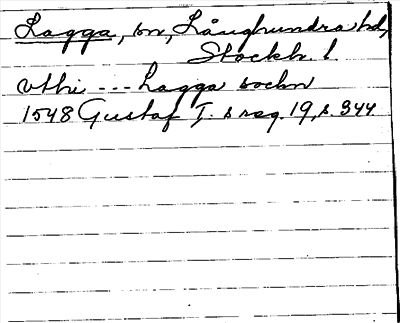 Lagga, sn, Långhundra hd,
Stockh. l.
vthi --- Lagga sochn
1548 Gustaf I. s reg. 19, s. 344